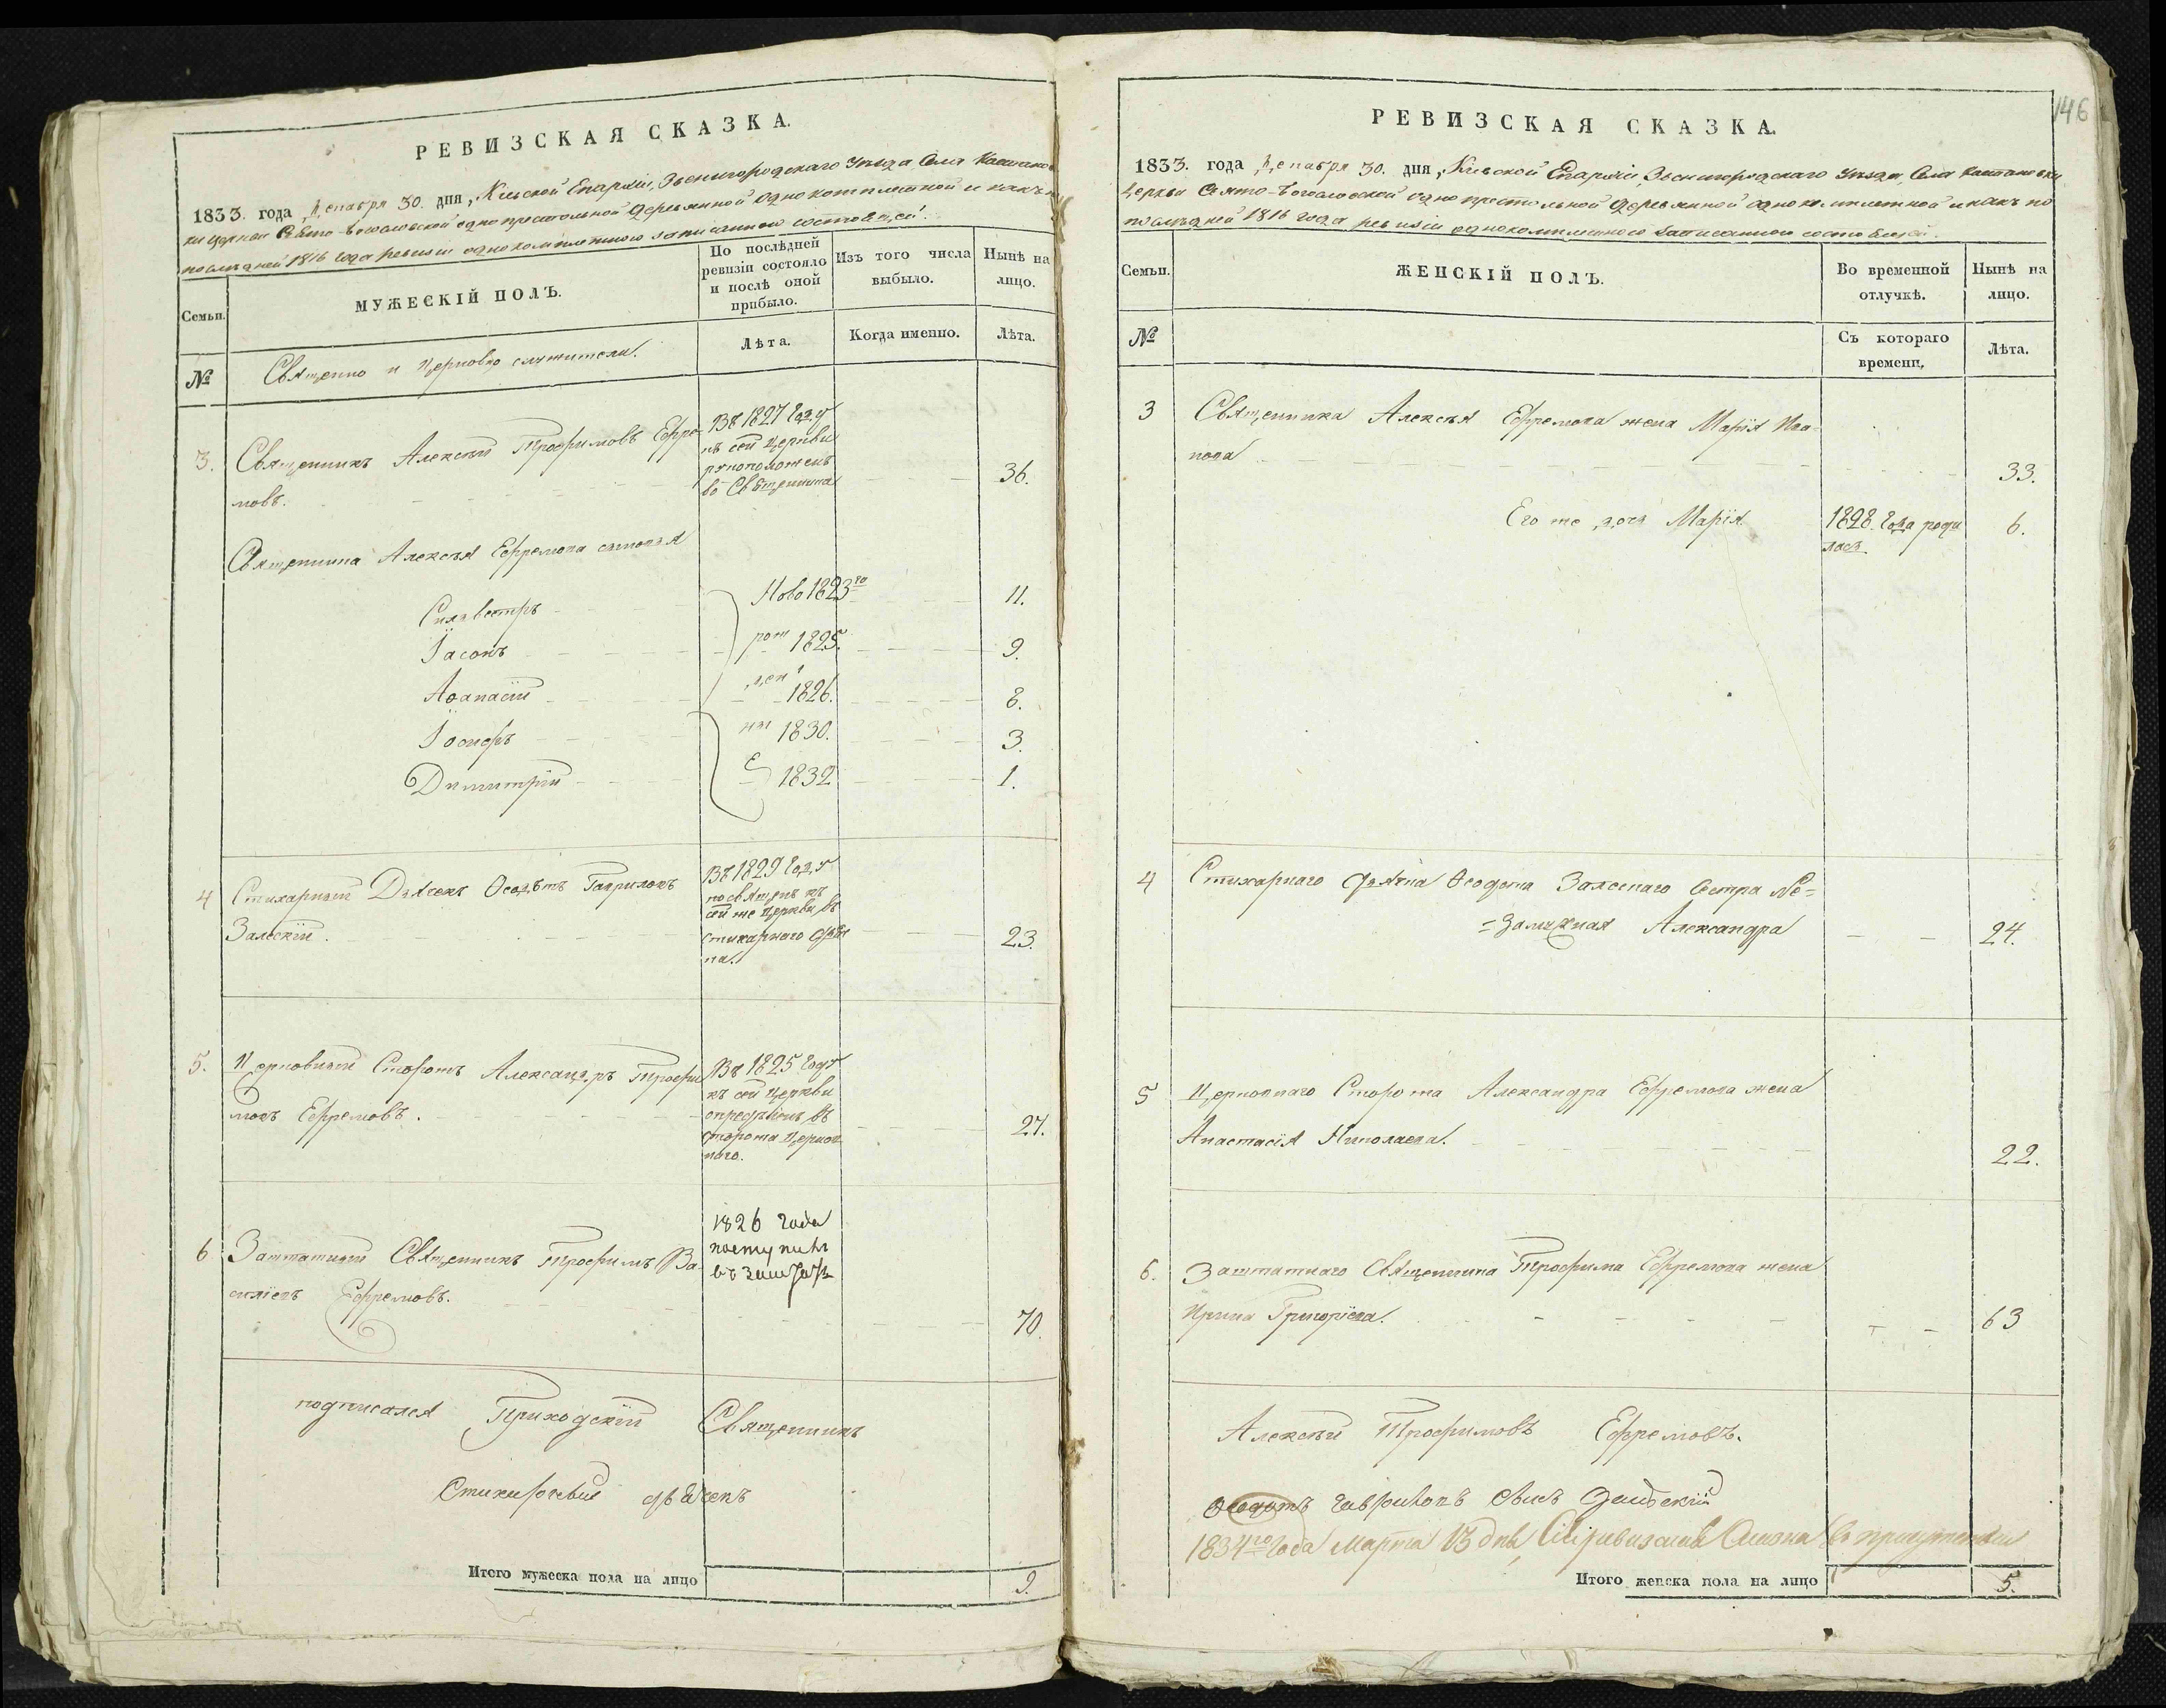 РЕВИЗСКАЯ СКАЗКА.
1833. года Декабря 30. дня, Кіевской Епархіи, Звенигородскаго Уѣзда, Села
ки церкви Свято-Богословской однопрестольной деревянной однокомплетной и какъ по
послѣдней 1816 года ревизіи однокомплетною записанною состоящей.
Семьи.
МУЖЕСКІЙ ПОЛЪ.
По послѣдней ревизіи состояло и послѣ оной прибыло.
Изъ того числа выбыло.
Нынѣ на лицо.
№
Священно и Церковно служители.
Лѣта.
Когда именно.
Лѣта.
3. Священникъ Алексѣй Трофимовъ Ефре-
мовъ.
Въ 1827 Году
къ сей Церкви
рукоположенъ
во Священника
36.
Священника Алексѣя Ефремова сыновья
Силвестръ
Ново 1823го
11.
Іасонъ
рож 1825.
9.
Аѳанасій
ден 1826.
8.
Іосифъ
ны 1830.
3.
Димитрій
е 1832
1.
4 Стихарный Дьячекъ Ѳеодотъ Гавриловъ
Залескій.
Въ 1829 Году
посвященъ къ
сей же Церкви въ
стихарнаго Дьяч
ка.
23.
5. Церковный Сторожъ Александръ Трофи
мовъ Ефремовъ.
Въ 1825 Году
къ сей Церкви
опредѣленъ въ
сторожа Церков
наго.
27.
6 Заштатный Священникъ Трофимъ Ва-
силіевъ Ефремовъ.
1826 года
поступилъ
въ заштатъ
70.
подписался Приходскій Священникъ
Стихарный дьячекъ
Итого мужеска пола на лицо
9.
146
РЕВИЗСКАЯ СКАЗКА.
1833. года Декабря 30. дня, Кіевской Епархіи, Звенигородскаго Уѣзда, Села
Церкви Свято-Богословской однопрестольной деревянной однокомплетной и какъ по
послѣдней 1816 года ревизіи однокомплетною записанною состоящей.
Семьи.
ЖЕНСКІЙ ПОЛЪ.
Во временной отлучкѣ.
Нынѣ на лицо.
№
Съ котораго времени.
Лѣта.
3 Священника Алексѣя Ефремова жена Марія Ива-
нова
33.
Его же дочь Марія
1828. Года роди
лась.
6.
4 Стихарнаго Дьячка Ѳеодота Залескаго Сестра Не-
=замужная Александра
24.
5 Церковнаго Сторожа Александра Ефремова жена
Анастасія Николаева.
22.
6. Заштатнаго Священника Трофима Ефремова жена
Ирина Григоріева.
63
Алексѣй Трофимовъ Ефремовъ.
Ѳеодотъ Гавриловъ сынъ Залѣскій
1834го года Марта 13 дня, Сія ревизская Сказка
Итого женска пола на лицо
5.